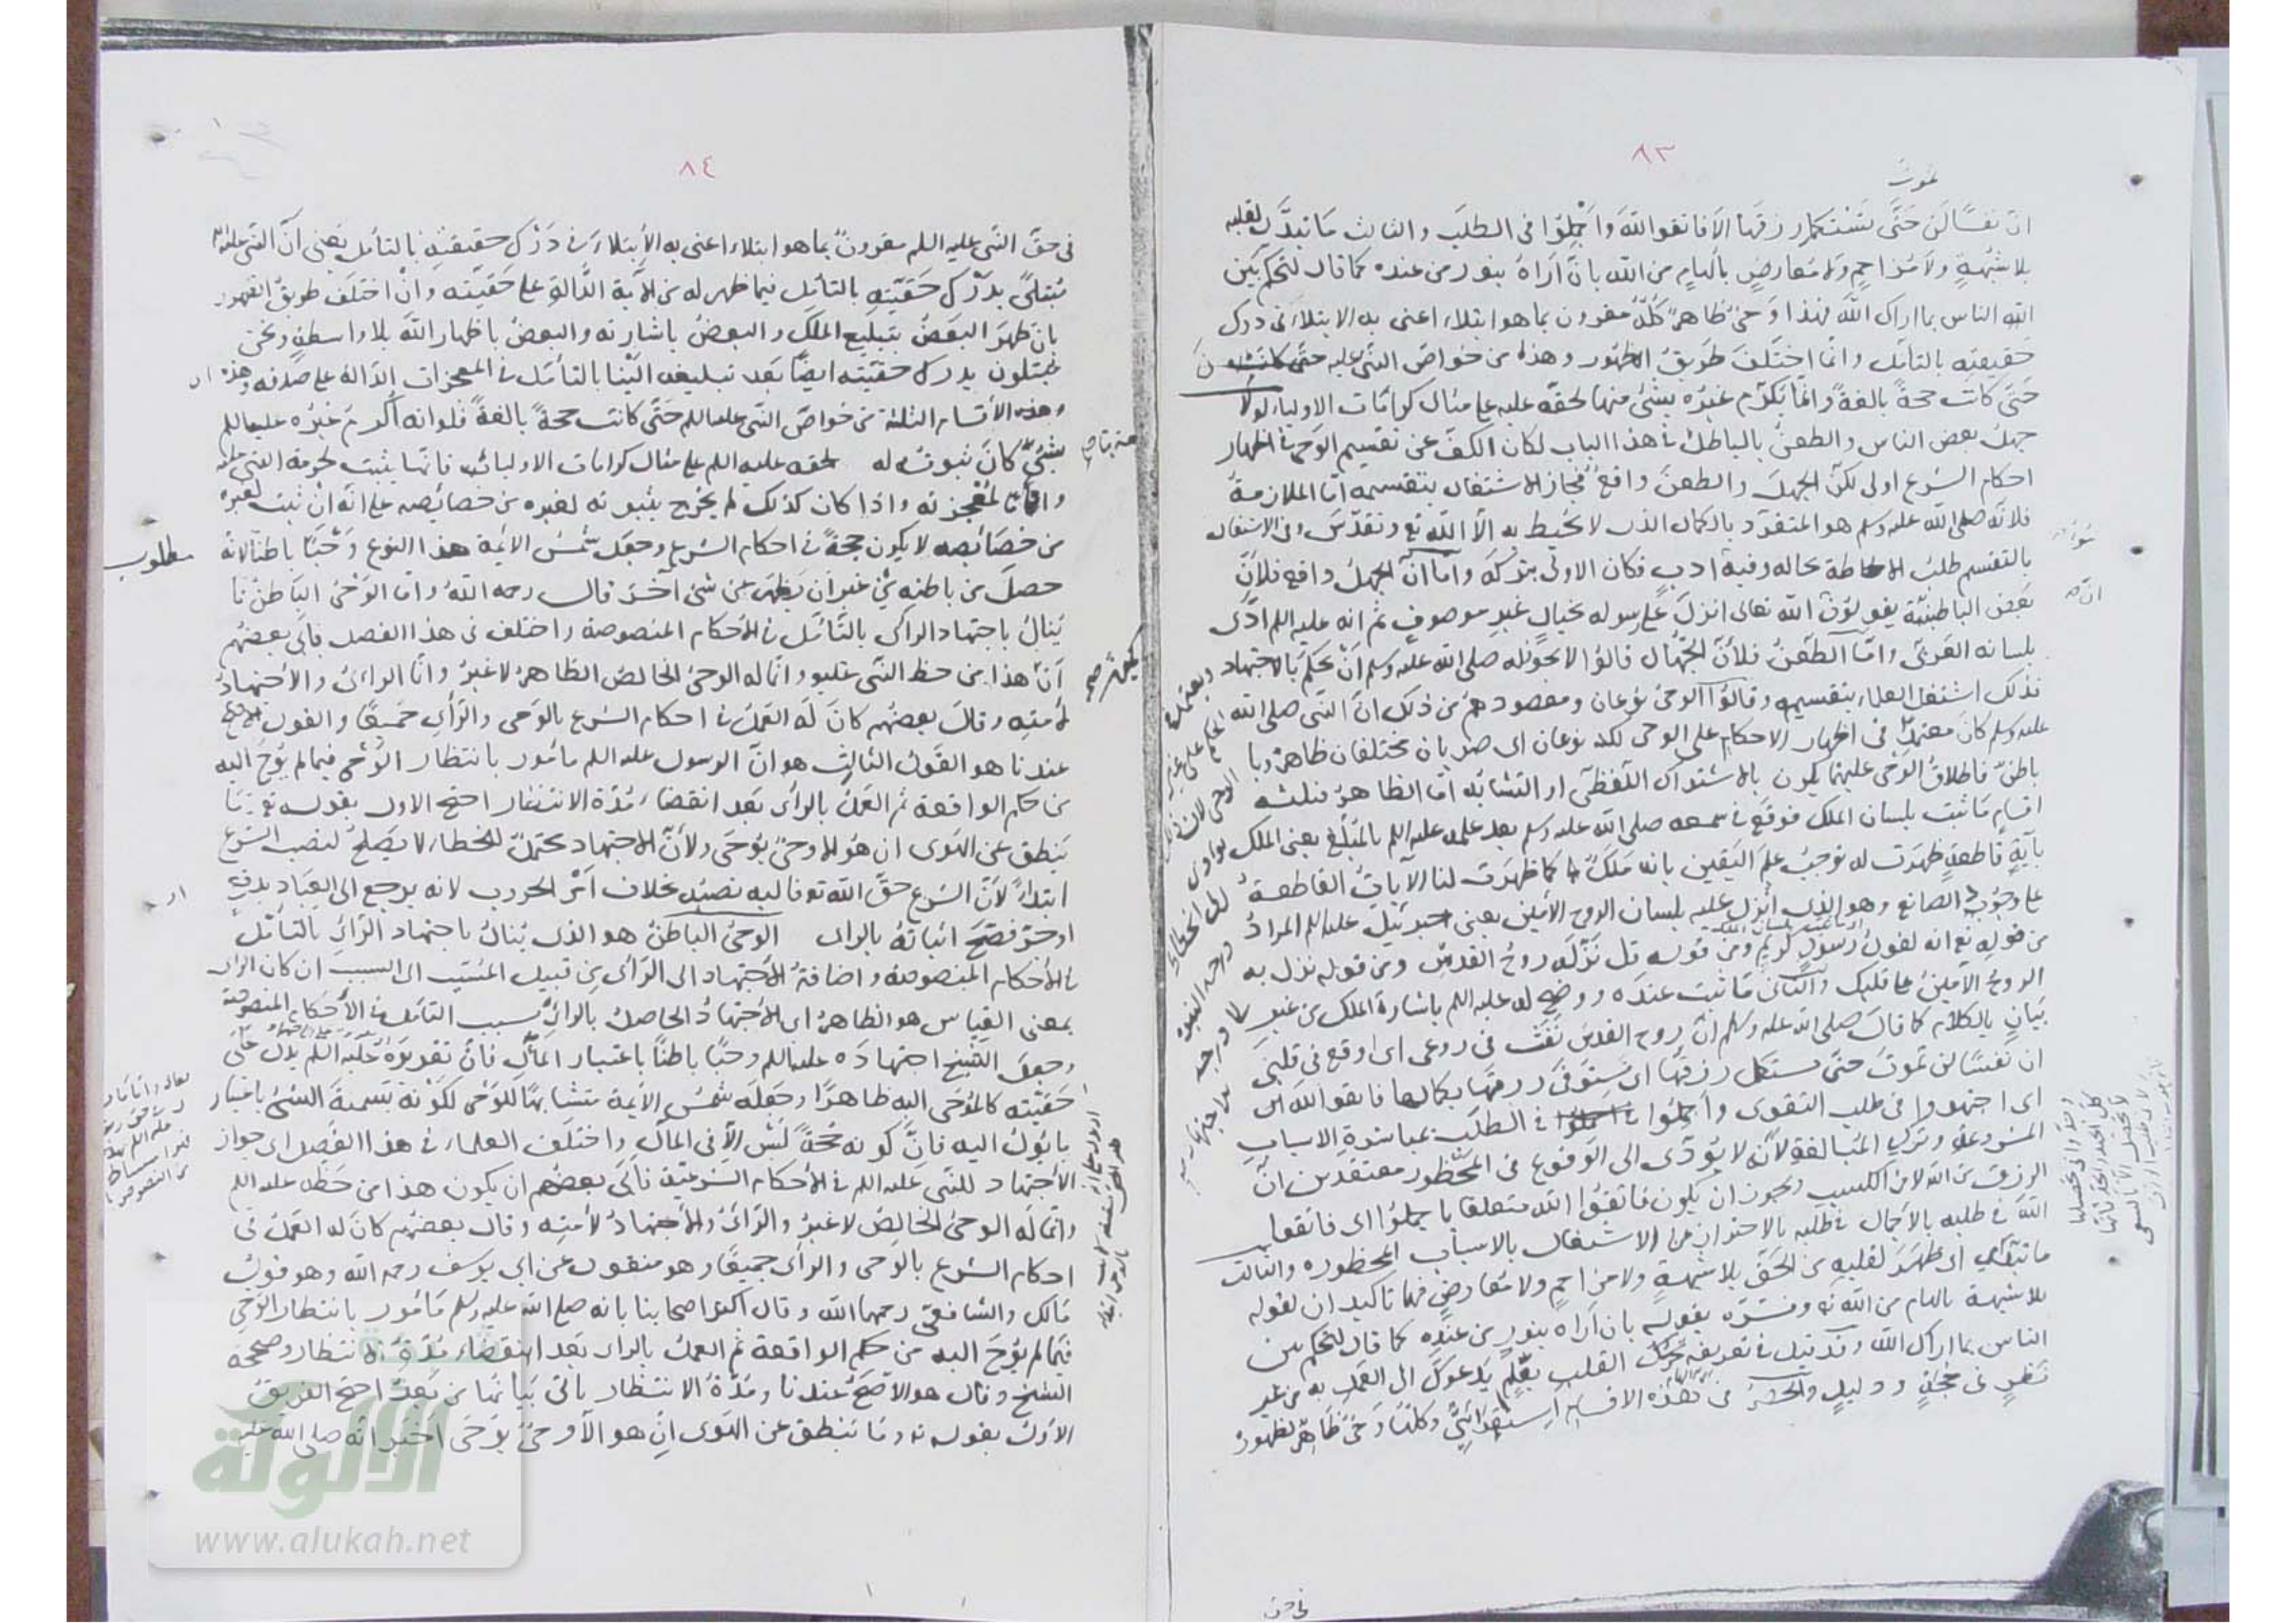 ٨٣
تموت
ان نفسًا لن حَتّى تَسْتكمل رزقها الا فاتقوا اللهَ وَاَجْمِلوُا فى الطلَب والثالث مَا تبدَّى لقلبه
بلا شبُهةٍ ولَا مُزَاحِمٍ ولا مُعارضٍ بالهامٍ من الله بانَ اَرَاهُ بنور من عنده كما قال لتحكم بَين
الله الناس بما اراك اللهَ فهذا وَحىٌ ظاهرٌ كُلّهُ مقرون بما هو ابتلاء اعنى به الابتلاءَ فى درك
حَقيقتِه بالتأمّل وانّما اختَلَفَ طَريقُ الظهور وهذه من خواصّ النبّى عليه حتّى كانت
حَتى كانَت حجةً بالغةً وانّما يكرّم غيرُه بشئ منها لحقّه عليه على مثال كرامَات الاولياء لولا
جهلُ بعض الناس والطعنُ بالباطل فى هذا الباب لكان الكفّ عن تقسيم الوَحى فى اظهار
احكام الشرع اولى لكنّ الجهلَ والطعنَ واقعٌ فجاز الاشتغال بتقسيمه امّا الملازمةُ
فلانّه صلى الله عليه وسلم هو المتفرّد بالكمال الذى لا يُحيط به الّا الله تع وتقدّسَ وفى الاشتغال
بالتقسيم طلبُ الاحاطة بحاله وفيه تركُ ادبٍ فكان الاولى بتركه وامّا انّ الجهلُ واقع فلاَنّ
بَعضَ الباطنيّة يقولون الله تعالى انزل على رسوله بخيالٍ غيرِ موصوفٍ ثم انه عليه السلم ادّى
بلسانه العَربىّ وامّا الطّعنُ فلأنّ الجُهّال قالوُا لا يجوز له صلى الله عليه وسلم اَنْ يحكم بالاجتهاد
فذلك اشتغل العلماء بتقسيمه وقالوُا الوحىُ نوعان ومقصودهم من ذلك انّ النبّى صلى الله
عليه وسلم كانَ معتمدًا فى اظهار الاحكام على الوحى لكنه نوعان اى ضربان مختلفان ظاهرٌ وبا
باطنٌ فاطلاقُ الوَحى عليهما يكون بالاشتراك اللّفظى او التشابُه امّا الظاهرُ فثلثة
اقسامٍ مَا ثبتَ بلسان الملك فوقعَ فى سمعه صلى الله عليه وسلم بعد علمه عليه السلم بالمبلّغ يعنى الملك
بآيةٍ قاطعةٍ ظهرَت له توجبُ علمَ اليَقين بانه مَلَكٌ كمَا ظهَرت لنا الآياتُ القاطعةُ
على وجُوُب الصّانع وهو الذى اُنزل عليه بلسان الروح الأمين يعنى جبرئيلَ عليه السلم المرادُ
من قولِه تع انه لقولُ رَسولٍ كريمٍ ومن قوله قل نزّله روحُ القدسُ ومن قوله نزل به
الروحُ الأمينُ على قلبك والثانى مَا ثبتَ عندَه ووضح له عليه السلم باشارة الملك من غير
بيَانٍ بالكلام كما قال صلى الله عليه وسلم انّ روح القدس نَفَثَ فى روعى اى اوقع فى قلبى
ان نفسًا لن تموتَ حتّى تستكمل رزقها اى تستوفىَ رزقهَا بكماله فاتقوا الله اى
اى اجتهدوا فى طلب التقوى واَجملوا فى الطلب بمباشرةِ الاسبابِ
المشروعةِ وتركِ المُبالغةِ لأنّه لا يؤدّى الى الوَقوُع فى المحظور معتقدين انّ
الرزق من الله لا من الكسب ويجوز ان يكون فاتقوُا الله متعلّقا باجملوُا اى فاتقوا
اللهَ فى طلبه بالاجمال فى طلبه بالاحتراز عن الاشتغال بالاسباب المحظوره والثالث
ما تبدّى اى ظهَرَ لقلبِه من الحقّ بلا شبهةٍ ولا مزاحمٍ ولا معارضٍ فهما تاكيدان لقوله
بلا شبهة بالهام من الله تع وفسّره بقوله بان اَراه بنورٍ من عنده كما قال لتحكم بين
الناس بما اراك الله وقد قيل فى تعريفه تحرّك القلب بعلمٍ يَدعوك الى العمل به من غير
نَظرٍ فى حُجّةٍ ودليلٍ والحصرُ فى هذه الاقسام استقرائىٌّ وكلّها وَحىٌ ظاهرٌ لظهور
٨٤
فى حقّ النبّى عليه السلم مقرونٌ بما هو ابتلاء اعنى به الابتلاءَ فى دَرْك حقيقته بالتأمّل يعنى انّ النبّى عليه السلم
مُبتلًى بدَرْك حَقّيّته بالتأمّل فيما ظهر له من الآية الدّالةِ على حَقّيّته وانْ اختلَف طريقُ الظهور
بان ظهرَ البَعضُ بتبليع الملَك والبعضُ باشارته والبعضُ باظهار اللهَ بلا واسطةٍ ونحن
مبتلون بدرك حقّيّته ايضًا بَعد تبليغه الَيْنا بالتأمّل فى المعجزات الدّالة على صدقه وهذه
وهذه الأقسام الثلثة من خواصّ النبّى عليه السلم حَتّى كانت حجةً بالغةً فلو انه اُكرمَ غيرُه عليه السلم
بشئٍ كانَ ثبوتُه له لحقه عليه السلم على مثال كرامات الاولياء فانّها يثبت لحرمة النبى عليه السلم
واتمامًا لمُعْجزته واذا كان كذلك لم يخرج بثبوته لغيره من خصائصه على انّه انْ ثبت لغيره
من خصَائصه لا يكون حجةً فى احكام الشرع وجعَل شمسُ الائمة هذا النوع وَحْيًا باطنًا لانه
حصلَ من باطنه من غير ان يَظهَر من شئ آخَرَ قال رحمه اللهُ وامّا الوَحْىُ البَاطنُ مَا
يُنالُ باجتهاد الراى بالتّأمّل فى الأحكام المنصوصة واختلف فى هذا الفصل فابَى بعضهُم
اَنّ هذا من حظ النبّى عليه وانّما له الوحىُ الخالصُ الظاهرُ لا غيرُ وانّما الراىُ والأجتهادُ
لأمتِه وقالَ بعضهُم كانَ لَه العَملُ فى احكام الشرع بالوَحى والرّأىِ جَميعًا والقول الاصح
عندنا هو القَولُ الثالِث هو انّ الرسول عليه السلم مأمُور بانتظار الوَحْى فيما لم يُوحَ اليه
من حكم الواقعة ثم العَملُ بالراى بَعد انقضاءِ مُدّة الانتظار احتج الاول بقوله تع وَمَا
يَنطق عن الهَوى ان هُو الا وحىٌ يُوحَى ولأنّ الاجتهادَ محتملٌ للخطاءِ لا يَصلحُ لنصب الشرع
ابتداءً لأنّ الشرع حقّ الله تع فاليه نصبُه بخلاف اَمْرِ الحروب لانه يرجع الى العبَاد بدفعٍ
او جرٍّ فصَحّ اثباتهُ بالراى الوَحىُ الباطنُ هو الذى يُنالُ باجتهاد الرّاىِ بالتأمّل
فى الأحكام المنصوصة واضافةُ الأجتهاد الى الرّأى من قبيل المسَبّب الى السبب ان كان الراى
بمعنى القيَاس هو الظاهرُ اى الأجتهادُ الحاصلُ بالراىِ بسبب التامّل فى الأحكام المنصوصة
وجعلَ الشيخ اجتهادَه عليه السلم وحيًا باطنًا باعتبار المآل فانّ تقريرَهُ عليه السلم يدلّ على
حَقّيته كالمُوحَى اليه ظاهرًا وجَعلَه شمسُ الأئمة متشابهًا للوَحْى لكَوْنه تسميةَ الشئ باعتبار
ما يؤلُ اليه فانّ كونه حجّةً ليْسَ الّا فى المآل واختلَفَ العلماءُ فى هذا الفَصِل اى جواز
الأجتهاد للنبّى عليه السلم فى الأحكام الشرعيّة فابَى بعضهُم ان يكون هذا من حظه عليه السلم
وانّما لَه الوحىُ الخالصُ لا غيرُ والرّأىُ والأجتهادُ لأمتِه وقال بعضهُم كانَ له العملُ فى
احكام الشرع بالوَحى والرأى جميعًا وهو منقول عن ابى يوسُف رحمه الله وهو قولُ
مَالك والشافعىّ رحمهما الله وقال اكثر اصحابنا بانه صلى الله عليه وسلم مَامُور بانتظار الوَحىِ
فيما لم يُوحَ اليه من حكم الواقعة ثم العملُ بالراى بَعد انقضَاءِ مُدّةِ الانتظار وصححه
الشيخ وقال هو الأصَحُّ عندنا ومُدّةُ الانتظار ياتى بيَانهَا من بَعدُ احتجّ الفريقُ
الأوّلُ بقوله تع وَمَا يَنطق عن الهَوى اِنْ هو الّا وحىٌ يُوحَى اَخبَرَ انّه صلى الله عليه
مطلوب
الألوكة
www.alukah.net